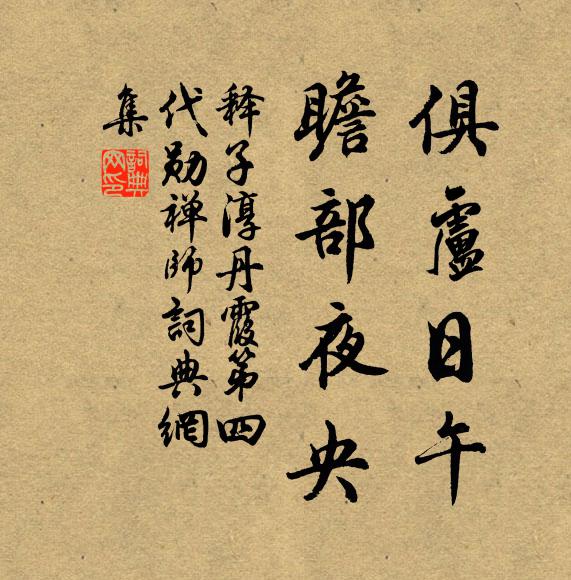 俱盧日午
瞻部夜央
释子淳丹霞第四
代勋禅師詞典網
集
詞典網印